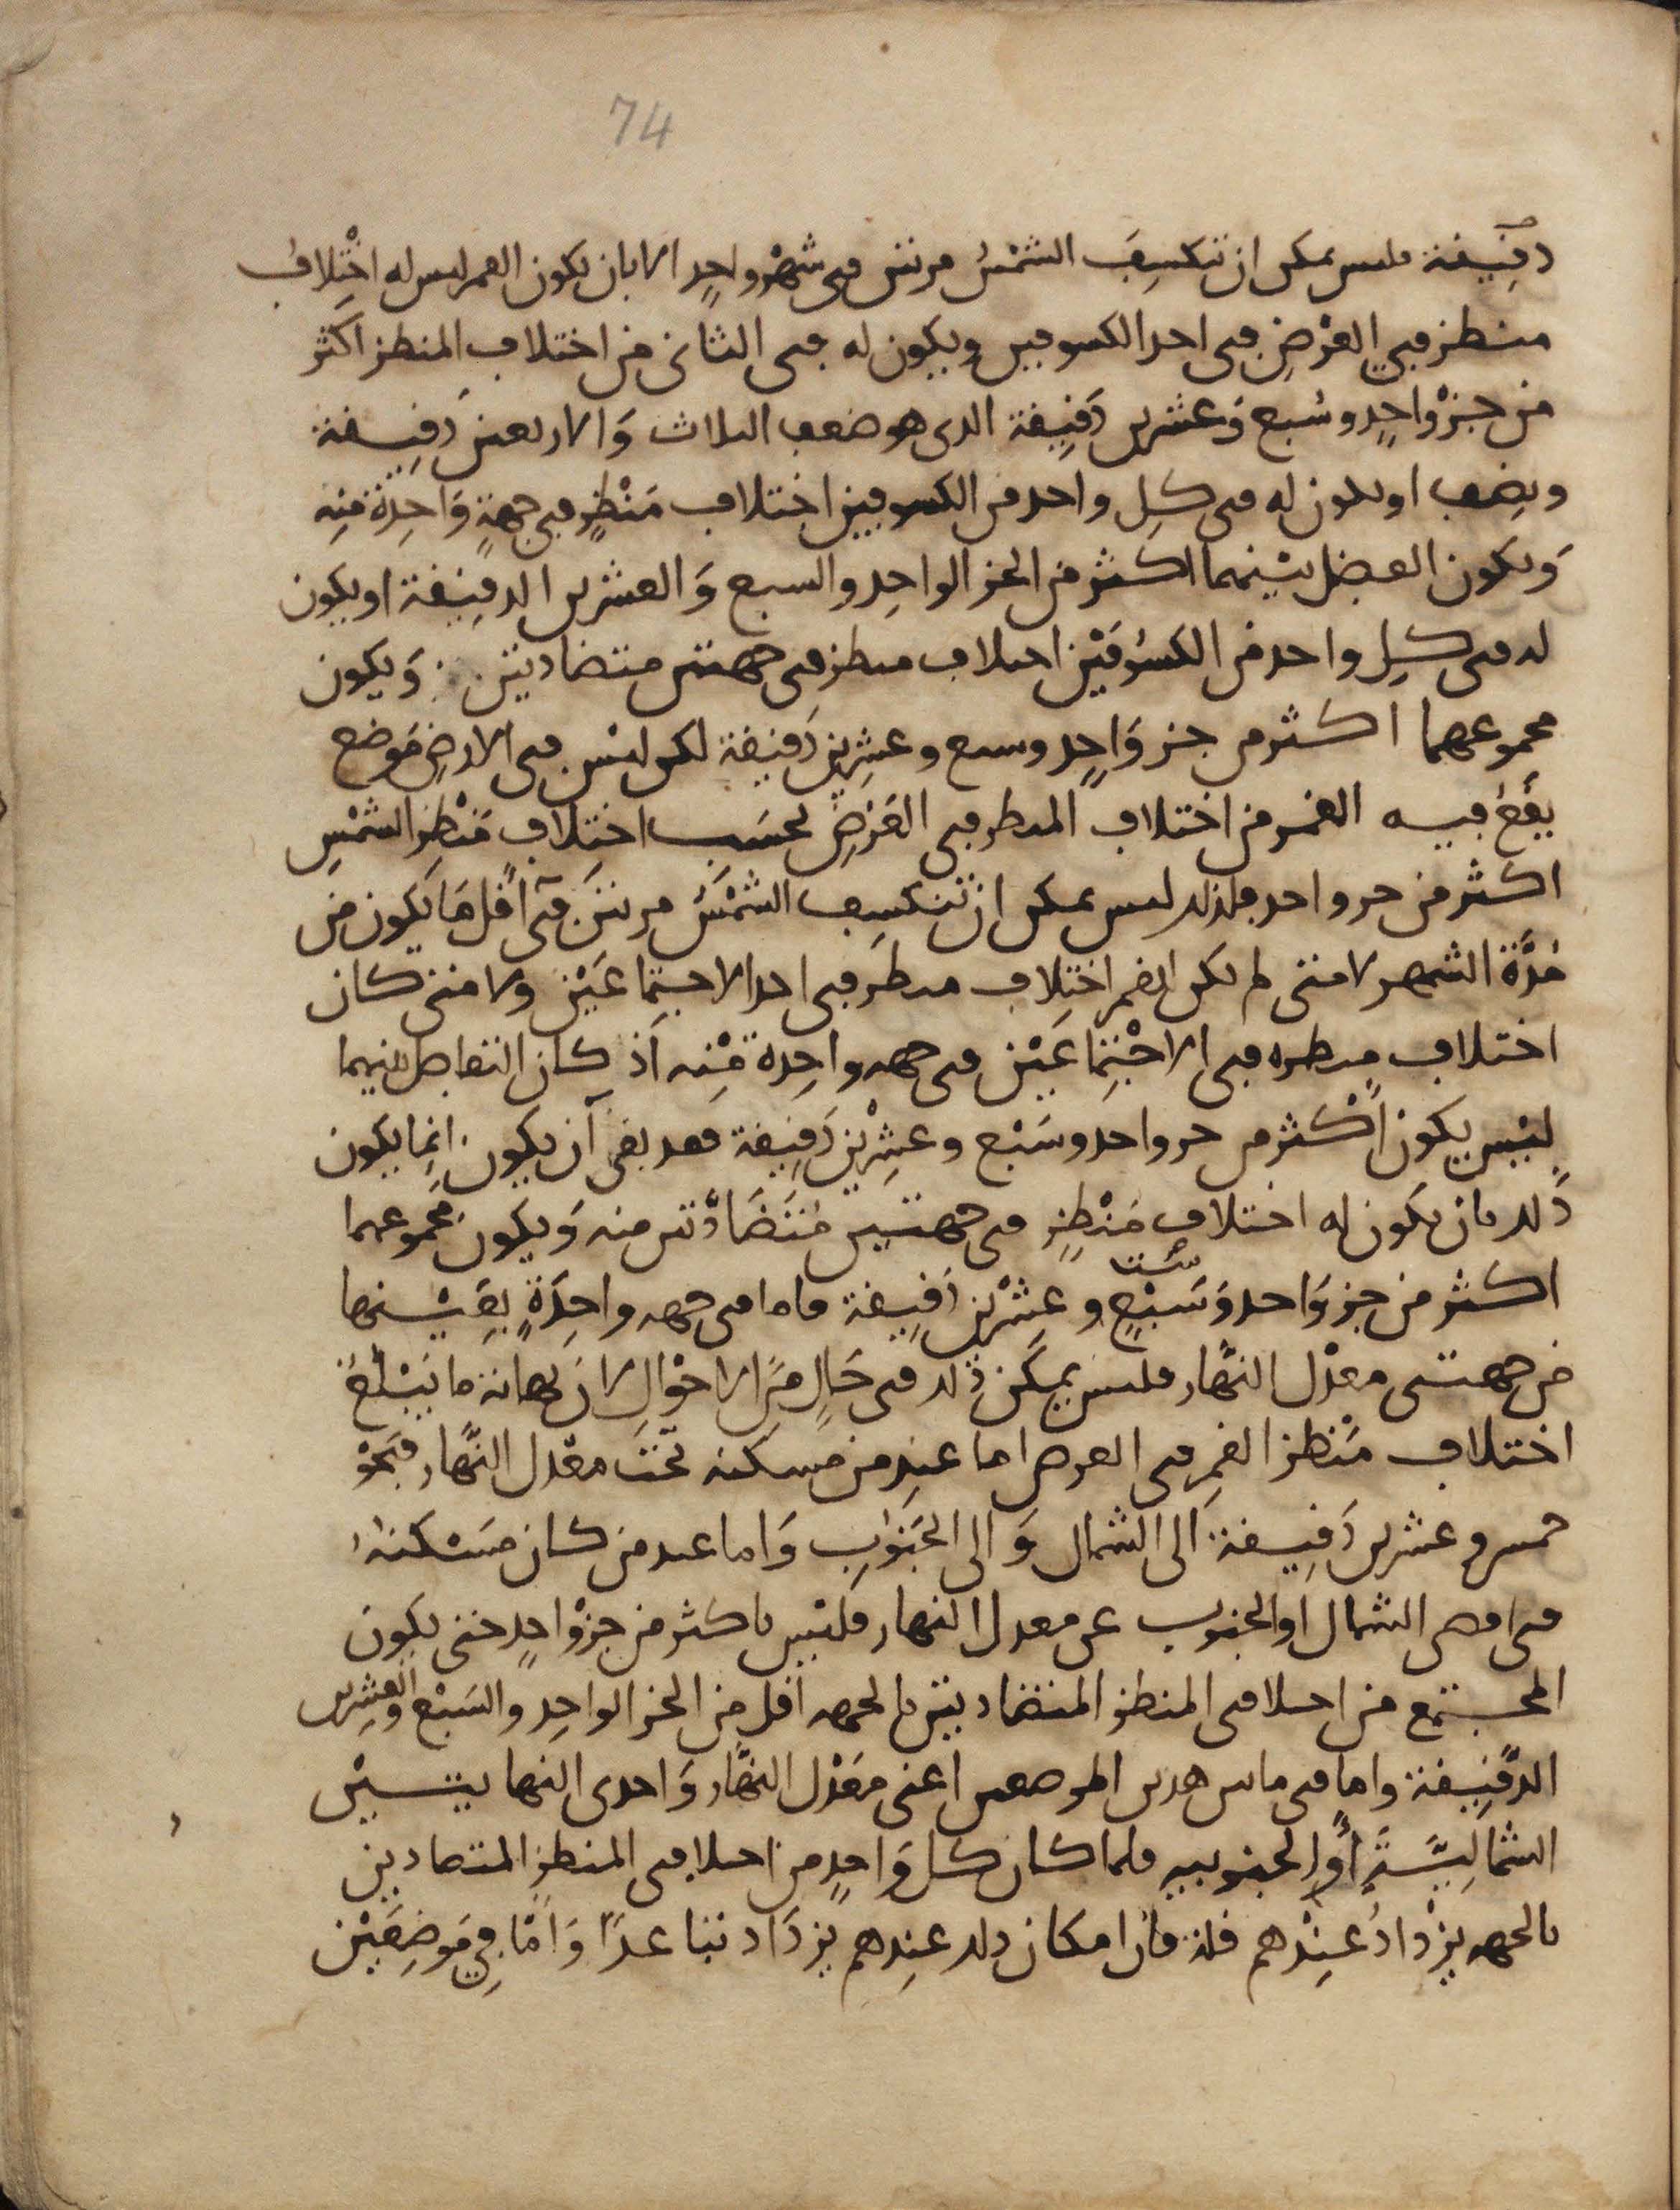 74
دقيقة فليس يمكن ان تنكسف الشمس مرتين في شهر واحد الا بان يكون القمر ليس له اختلاف
منظر في العرض في احد الكسوفين ويكون له في الثاني من اختلاف المنظر اكثر
من جزْ واحد وسبع وعشرين دقيقة الذي هو ضعف الثلاث والاربعين دقيقة
ونصف او يكون له في كل واحد من الكسوفين اختلاف منظر في جهة واحدة منه
ويكون الفضل بينهما اكثر من الجز الواحد والسبع والعشرين الدقيقة او يكون
له في كل واحد من الكسوفين اختلاف منظر في جهتين متضادتين ويكون
مجموعهما اكثر من جز واحد وسبع وعشرين دقيقة لكن ليس في الارض موضع
يقع فيه القمر من اختلاف المنظر في العرض بحسب اختلاف منظر الشمس
اكثر من جز واحد فلذلك ليس يمكن ان تنكسف الشمس مرتين في اقل ما يكون من
مدة الشهر لا متى لم يكن للقمر اختلاف منظر في احد الاجتماعين ولا متى كان
اختلاف منظره في الاجتماعين في جهه واحدة منه اذ كان التفاضل بينهما
ليس يكون اكثر من جز واحد وسبع وعشرين دقيقة فقد بقي ان يكون انما يكون
ذلك بان يكون له اختلاف منظر في جهتين متضادتين منه ويكون مجموعهما
اكثر من جز واحد وسبع ست وعشرين دقيقة فاما في جهه واحدة بعينها
من جهتي معدل النهار فليس يمكن ذلك في حال من الاحوال لان نهاية ما يبلغ
اختلاف منظر القمر في العرض اما عند من مسكنه تحت معدل النهار فنحو
خمس وعشرين دقيقة الى الشمال والى الجنوب واما عند من كان مسكنه
في اقصى الشمال او الجنوب عن معدل النهار فليس باكثر من جزْ واحد حتى يكون
المجتمع من اختلافي المنظر المتضادين بالجهه اقل من الجز الواحد والسبع والعشرين
الدقيقة واما في ما بين هذين الموضعين اعني معدل النهار واحدى النهايتين
الشمالية او الجنوبيه فلما كان كل واحد من اختلافي المنظر المتضادين
بالجهه يزداد عندهم قلة فان امكان ذلك عندهم يزداد تباعدا واما في موضعين